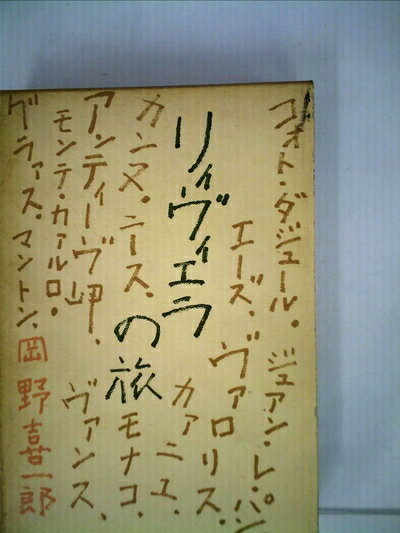 コォト・ダジュール。
ジュアン・レ・パン
エーズ、
ヴァロリス。
リィヴィエラ
の旅
カァニュ、
カンヌ。ニース。
モナコ、
アンティーヴ岬、
ヴァンス、
モンテ・カァルロ。
グラァス。マントン、
岡野喜一郎